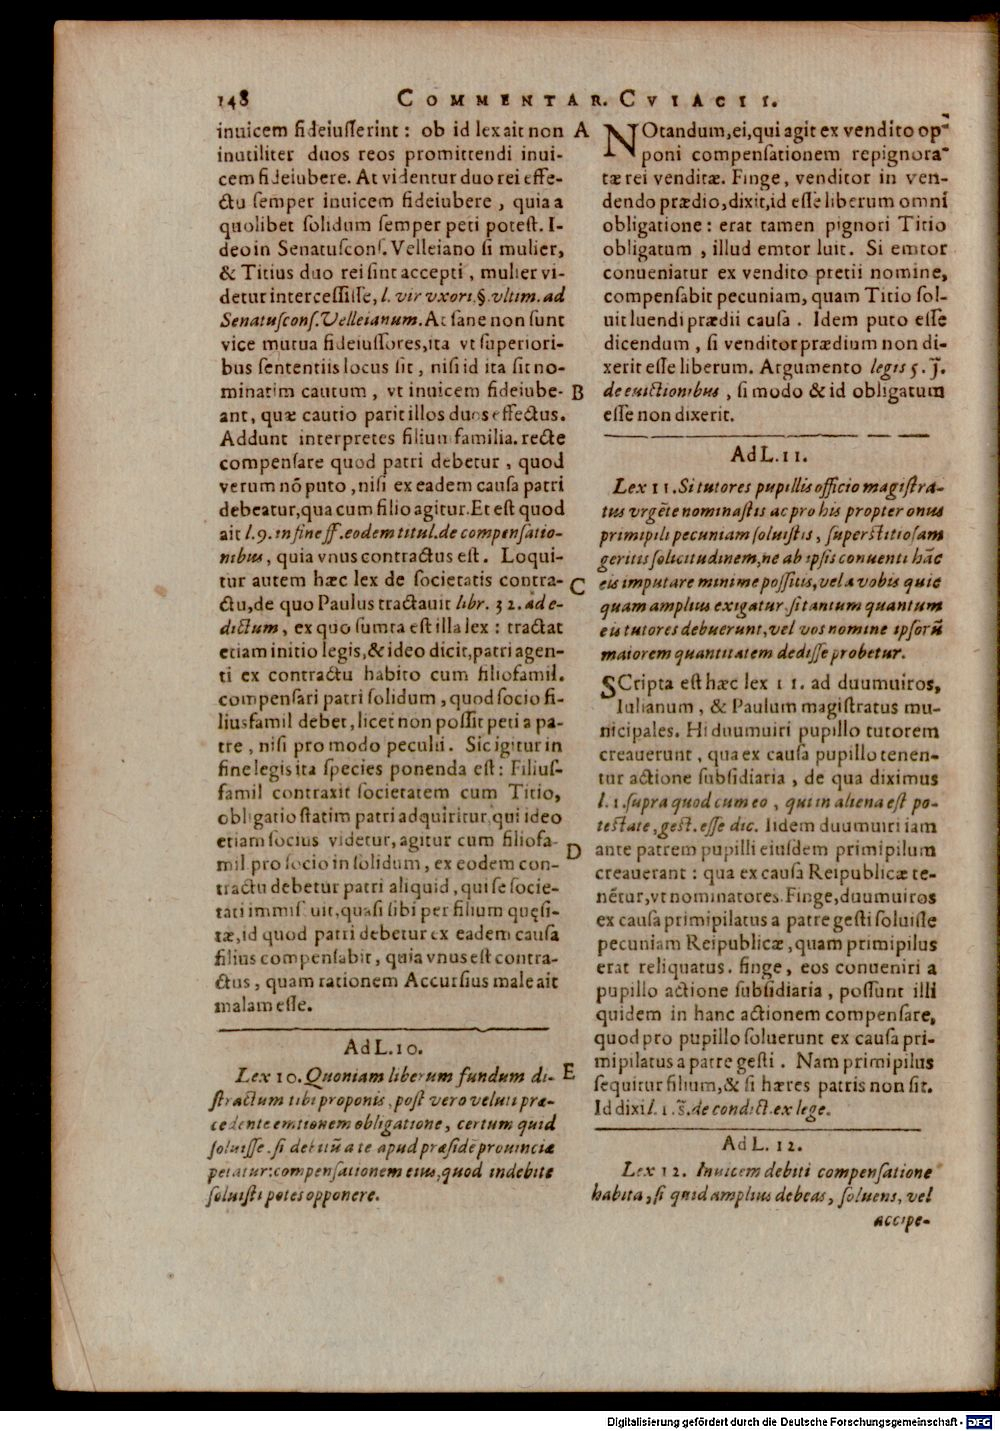 148
COMMENTAR. CVIACII.
inuicem fideiusserint: ob id lex ait non
inutiliter duos reos promittendi inui-
cem fideiubere. At videntur duo rei effe-
ctu semper inuicem fideiubere, quia a
quolibet solidum semper peti potest. I-
deo in Senatuscons. Velleiano si mulier,
& Titius duo rei sint accepti, mulier vi-
detur intercessisse, l. vir vxori. §. vltim. ad
Senatuscons. Velleianum. At sane non sunt
vice mutua fideiussores, ita vt superiori-
bus sententiis locus sit, nisi id ita sit no-
minatim cautum, vt inuicem fideiube-
ant, quæ cautio parit illos duos effectus.
Addunt interpretes filium familia. recte
compensare quod patri debetur, quod
verum nō puto, nisi ex eadem causa patri
debeatur, qua cum filio agitur. Et est quod
ait l. 9. in fine ff. eodem titul. de compensatio-
nibus, quia vnus contractus est. Loqui-
tur autem hæc lex de societatis contra-
ctu, de quo Paulus tractauit libr. 32. ad e-
dictum, ex quo sumta est illa lex: tractat
etiam initio legis, & ideo dicit, patri agen-
ti ex contractu habito cum filiofamil.
compensari patri solidum, quod socio fi-
liusfamil debet, licet non possit peti a pa-
tre, nisi pro modo peculii. Sic igitur in
fine legis ita species ponenda est: Filius-
famil contraxit societatem cum Titio,
obligatio statim patri adquiritur, qui ideo
etiam socius videtur, agitur cum filiofa-
mil pro socio in solidum, ex eodem con-
tractu debetur patri aliquid, qui se socie-
tati immiscuit, quasi sibi per filium quęsi-
tæ, id quod patri debetur ex eadem causa
filius compensabit, quia vnus est contra-
ctus, quam rationem Accursius male ait
malam esse.
Ad L. 10.
Lex 10. Quoniam liberum fundum di-
stractum tibi proponis, post vero veluti præ-
cedente emtionem obligatione, certum quid
soluisse. si debitū a te apud præsidē prouinciæ
petatur: compensationem eius, quod indebite
soluisti potes opponere.
A
B
C
D
E
NOtandum, ei, qui agit ex vendito op-
poni compensationem repignora-
tæ rei venditæ. Finge, venditor in ven-
dendo prædio, dixit, id esse liberum omni
obligatione: erat tamen pignori Titio
obligatum, illud emtor luit. Si emtor
conueniatur ex vendito pretii nomine,
compensabit pecuniam, quam Titio sol-
uit luendi prædii causa. Idem puto esse
dicendum, si venditor prædium non di-
xerit esse liberum. Argumento legis 5. J.
de euictionibus, si modo & id obligatum
esse non dixerit.
Ad L. 11.
Lex 11. Si tutores pupillis officio magistra-
tus vrgēte nominastis ac pro his propter onus
primipili pecuniam soluistis, superstitiosam
geritis solicitudinem, ne ab ipsis conuenti hāc
eis imputare minime possitis, vel a vobis quic
quam amplius exigatur. si tantum quantum
eis tutores debuerunt, vel vos nomine ipsorū
maiorem quantitatem dedisse probetur.
SCripta est hæc lex 11. ad duumuiros,
Iulianum, & Paulum magistratus mu-
nicipales. Hi duumuiri pupillo tutorem
creauerunt, qua ex causa pupillo tenen-
tur actione subsidiaria, de qua diximus
l. 1. supra quod cum eo, qui in aliena est po-
testate, gest. esse dic. Iidem duumuiri iam
ante patrem pupilli eiusdem primipilum
creauerant: qua ex causa Reipublicæ te-
nētur, vt nominatores. Finge, duumuiros
ex causa primipilatus a patre gesti soluisse
pecuniam Reipublicæ, quam primipilus
erat reliquatus. finge, eos conueniri a
pupillo actione subsidiaria, possunt illi
quidem in hanc actionem compensare,
quod pro pupillo soluerunt ex causa pri-
mipilatus a patre gesti. Nam primipilus
sequitur filium, & si hæres patris non sit.
Id dixi l. 1. s̄. de condict. ex lege.
Ad L. 12.
Lex 12. Inuicem debiti compensatione
habita, si quid amplius debeas, soluens, vel
accipe-
Digitalisierung gefördert durch die Deutsche Forschungsgemeinschaft - DFG